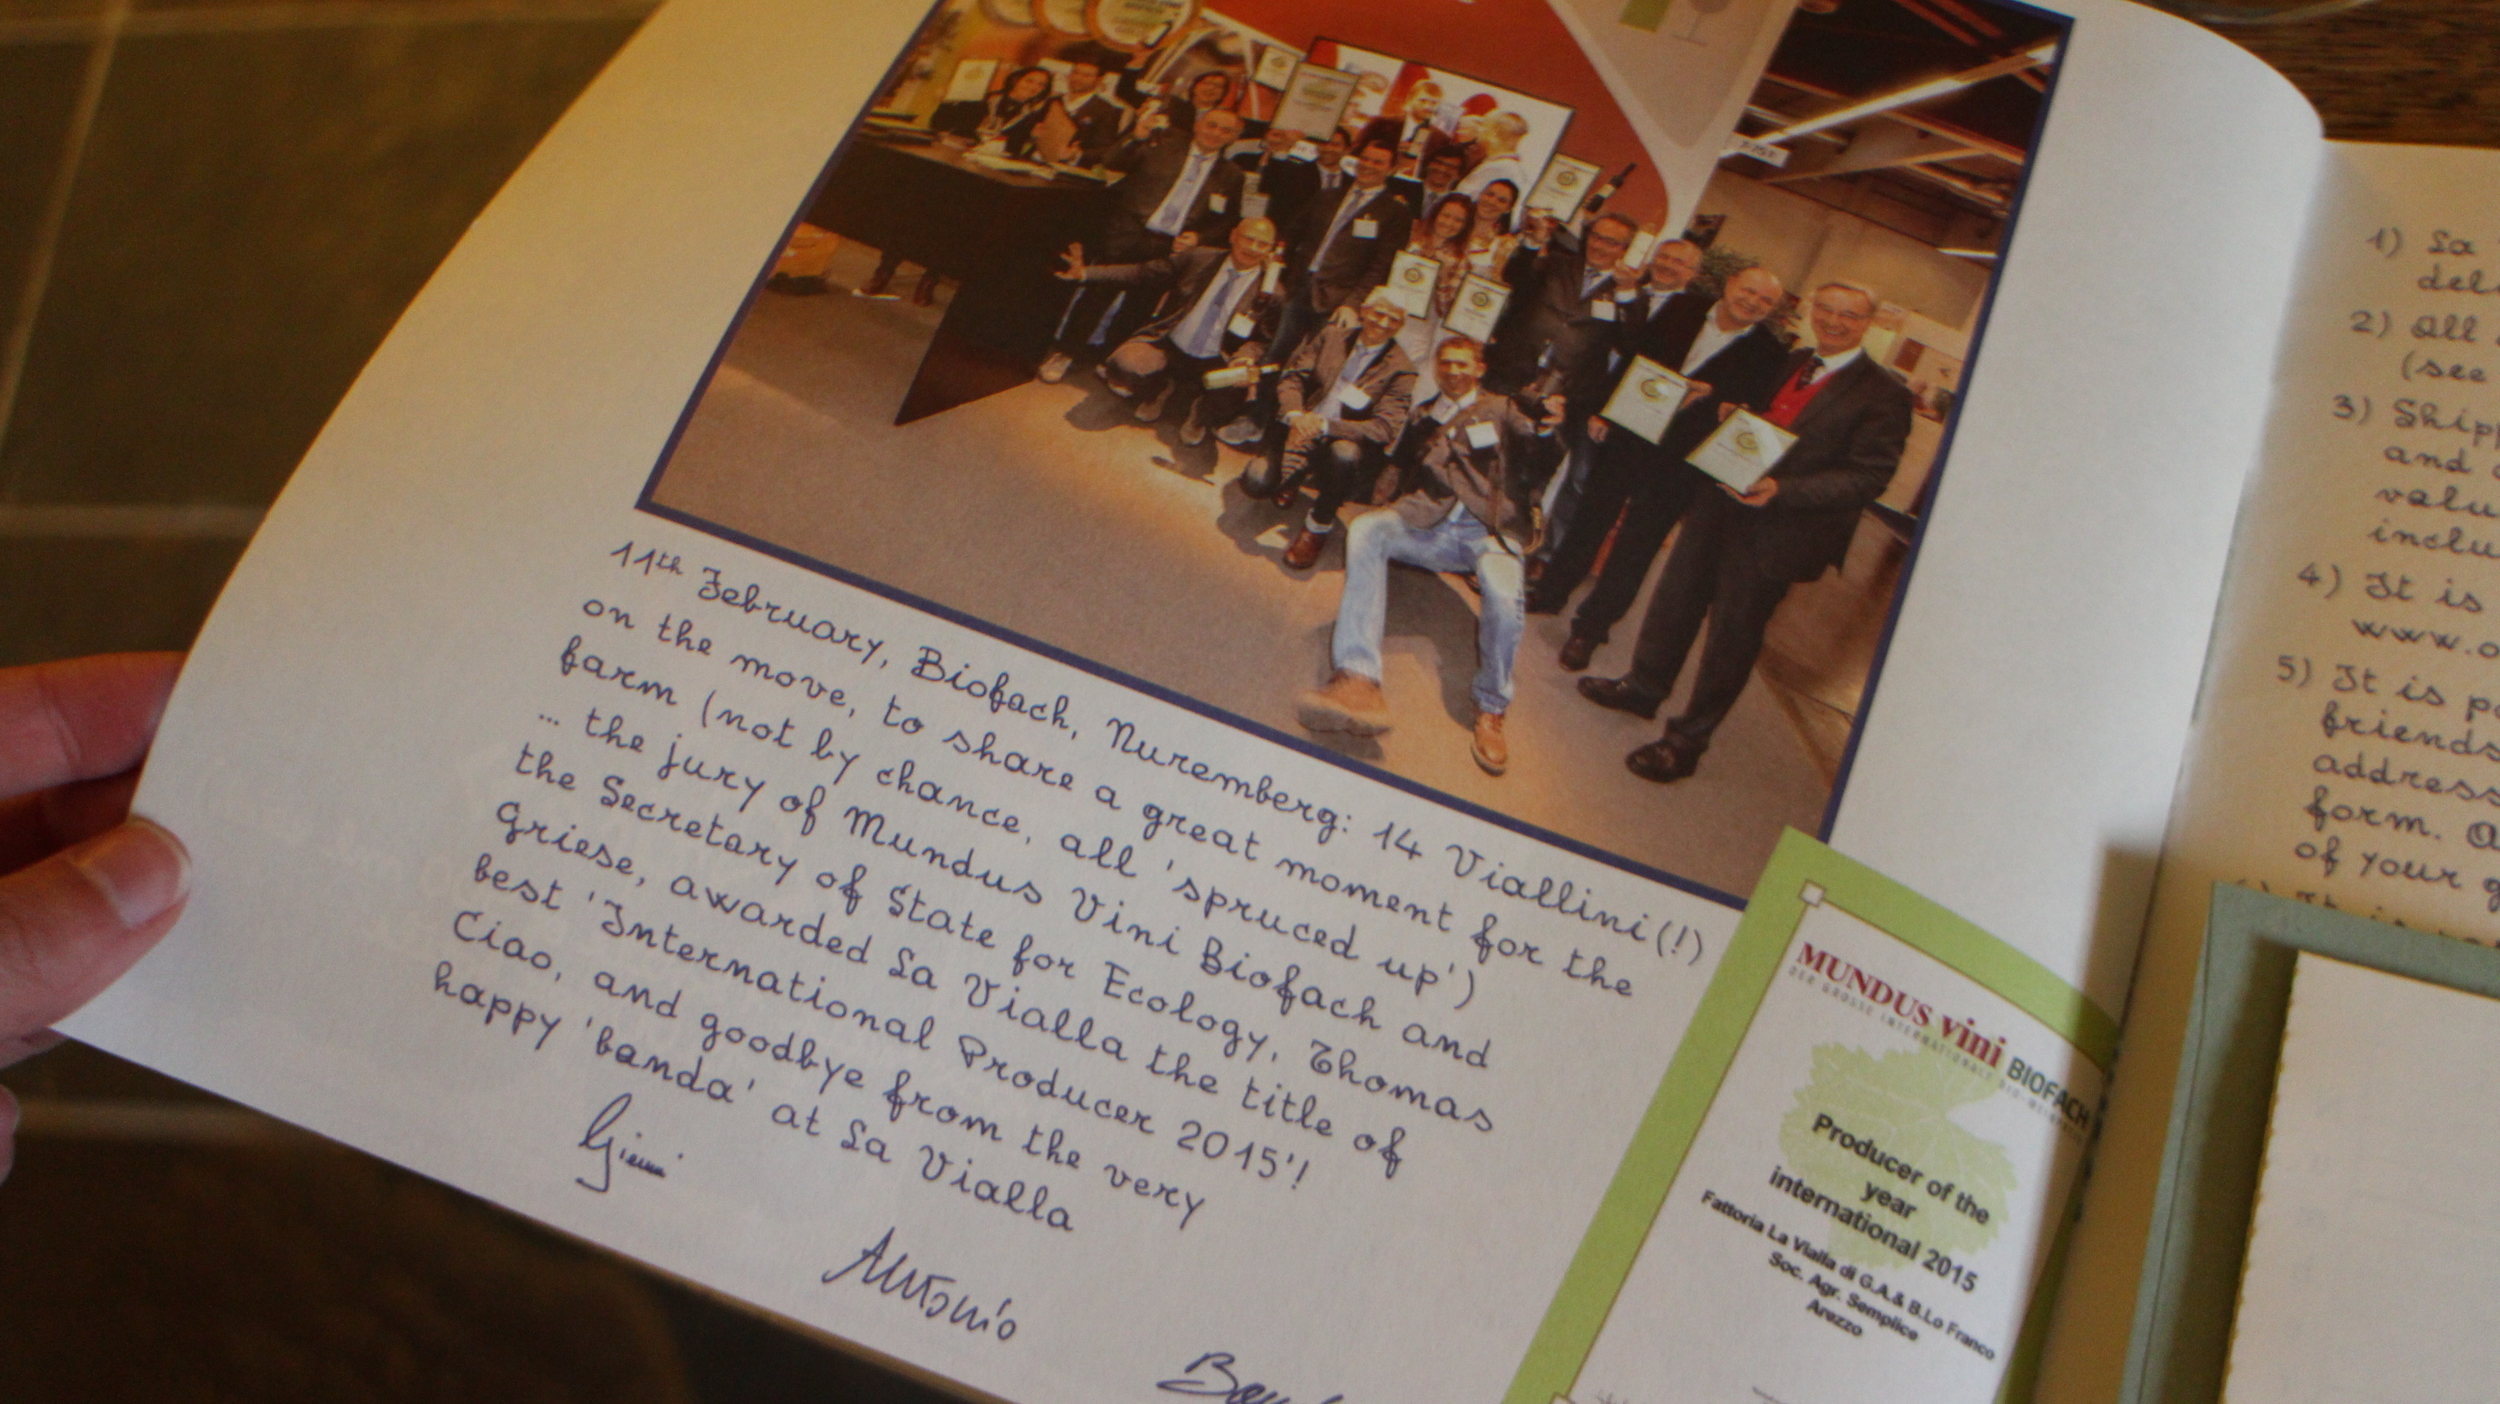 11th February, Biofach, Nuremberg: 14 Viallini(!)
on the move, to share a great moment for the
farm (not by chance, all 'spruced up')
... the jury of Mundus Vini Biofach and
the Secretary of State for Ecology, Thomas
Griese, awarded La Vialla the title of
best 'International Producer 2015'!
Ciao, and goodbye from the very
happy 'banda' at La Vialla
Antonio
MUNDUS vini BIOFACH
DER GROSSE INTERNATIONALE
Producer of the
year
international 2015
Fattoria La Vialla di G.A.& B.Lo Franco
Soc. Agr. Semplice
Arezzo
1) La
2) All
(see
3) Shipp
and
valu
inclu
4) It is
www.o
5) It is po
friends
address
form.
of your g